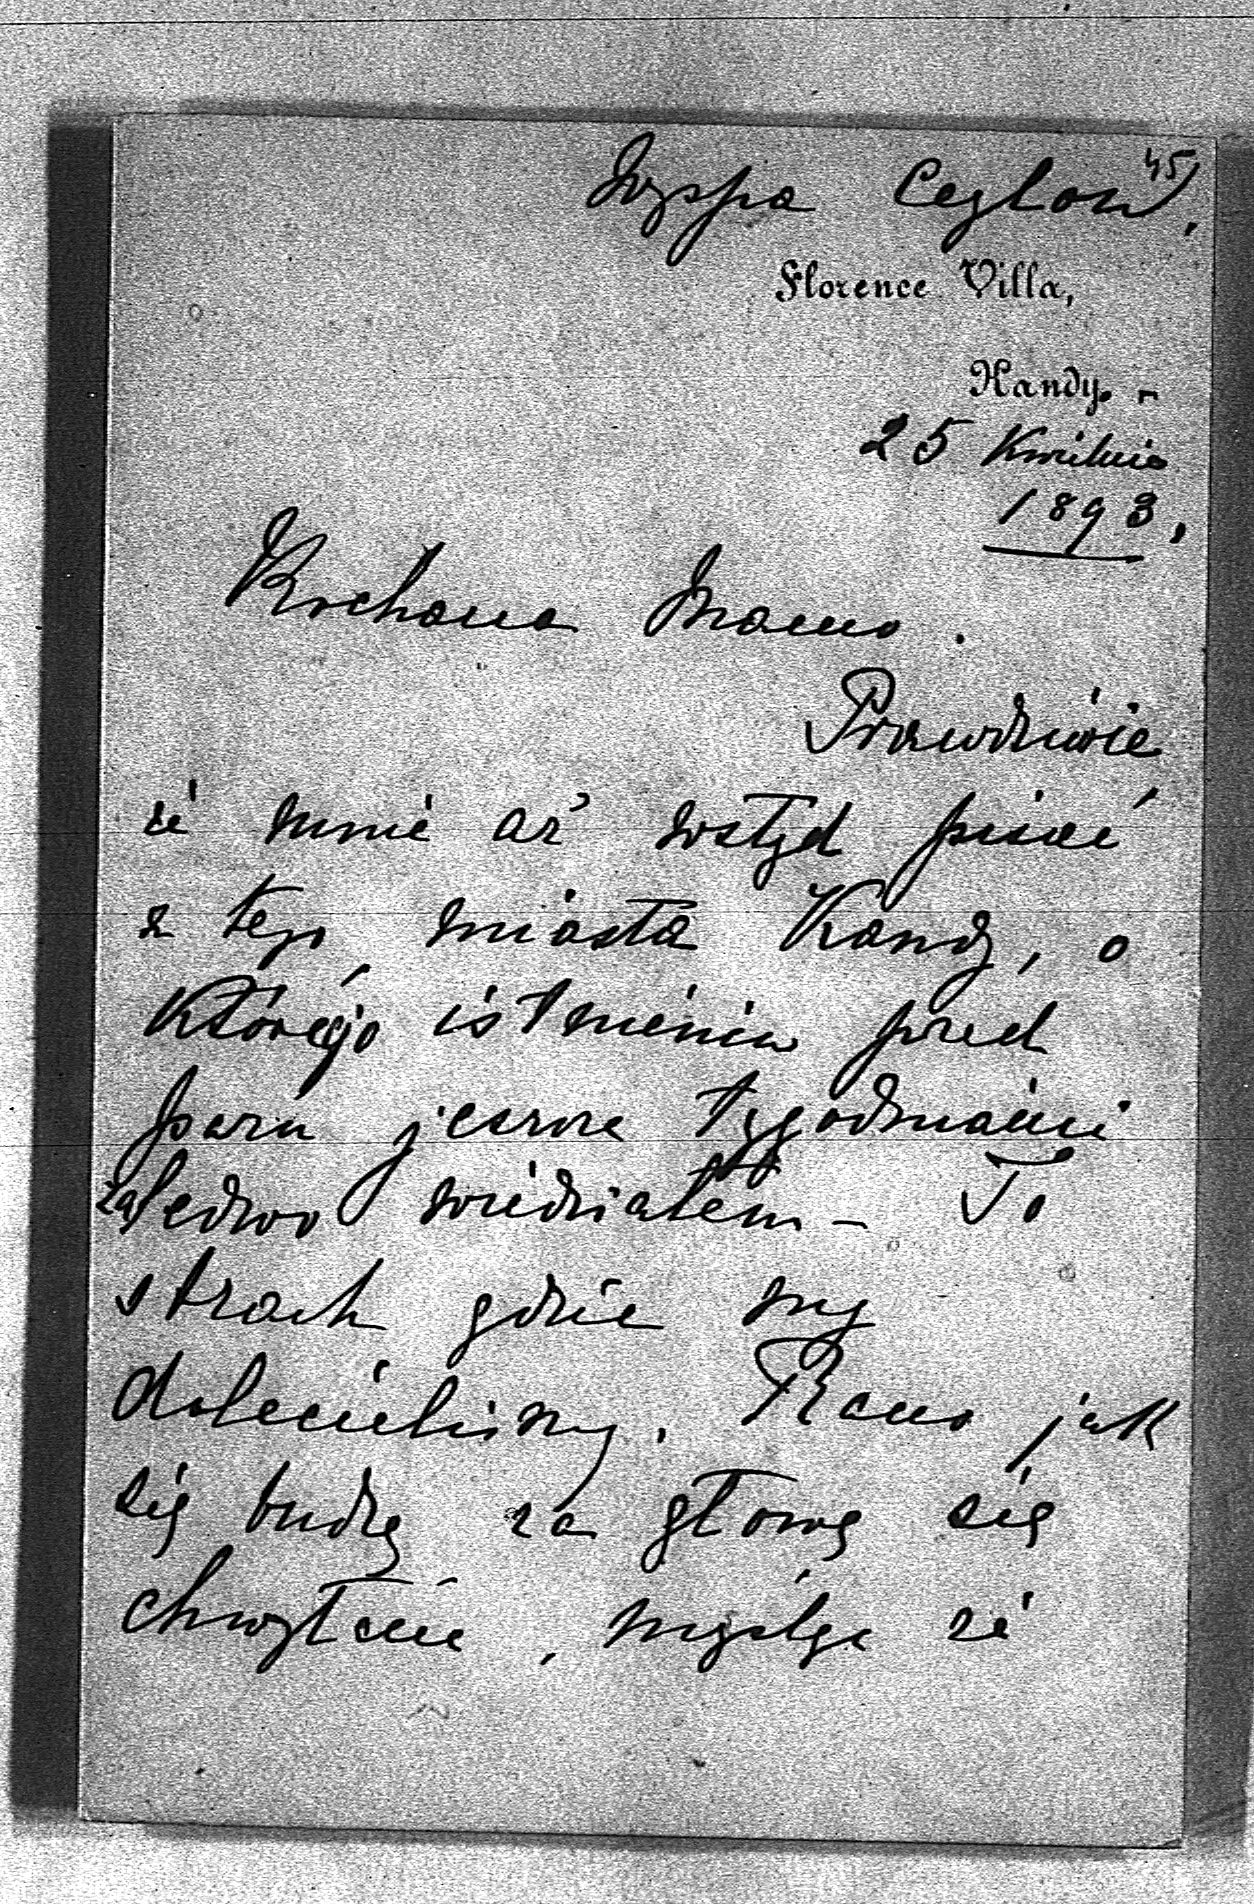 45
Wyspa Ceylon,
Florence Villa,
Kandy. -
25 Kwietnia
1893.
Kochana Mamo.
Prawdziwie
że mnie aż wstyd pisać
z tego miasta Kandy, o
którego istnieniu przed
paru jeszcze tygodniami
zaledwo wiedziałem - To
strach gdzie my
dolecieliśmy. Rano jak
się budzę za głowę się
chwytam, myśląc że